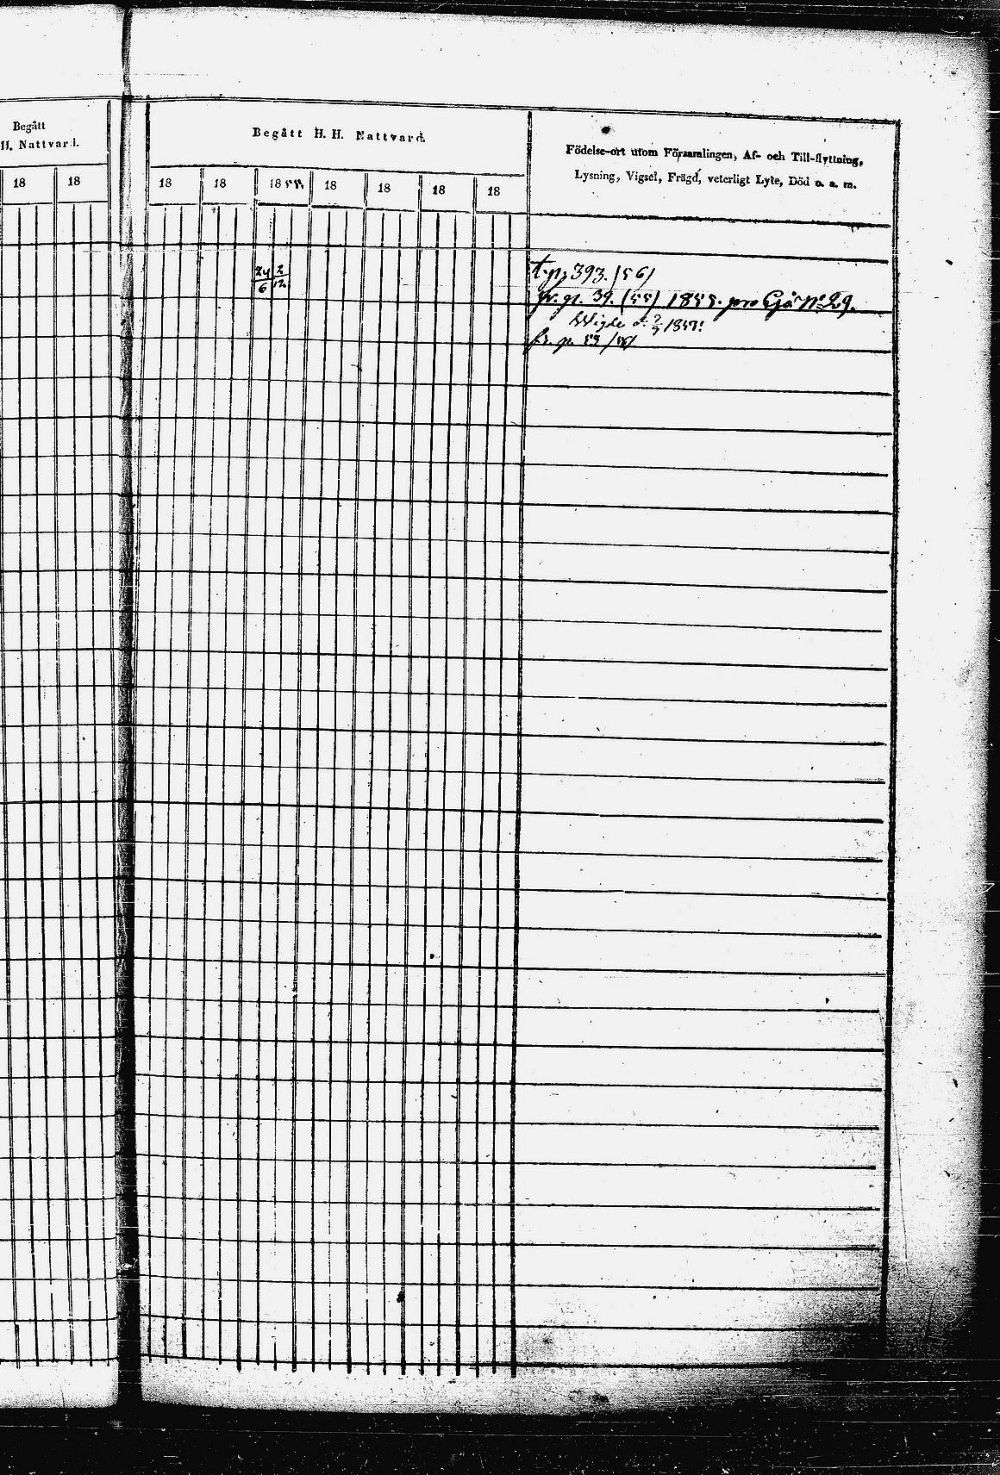 Begått
H. Nattvard.
18 18
Begått H. H. Nattvard.
18 18 1855. 18 18 18 18
Födelse-ort utom Församlingen, Af- och Till-flyttning,
Lysning, Vigsel, Frägd, veterligt Lyte, Död o. a. m.
24 2
6 12
t. p. 393. /56/
fr. p. 39. (55) 1855. pro
Wigde d.
fr. p. 53